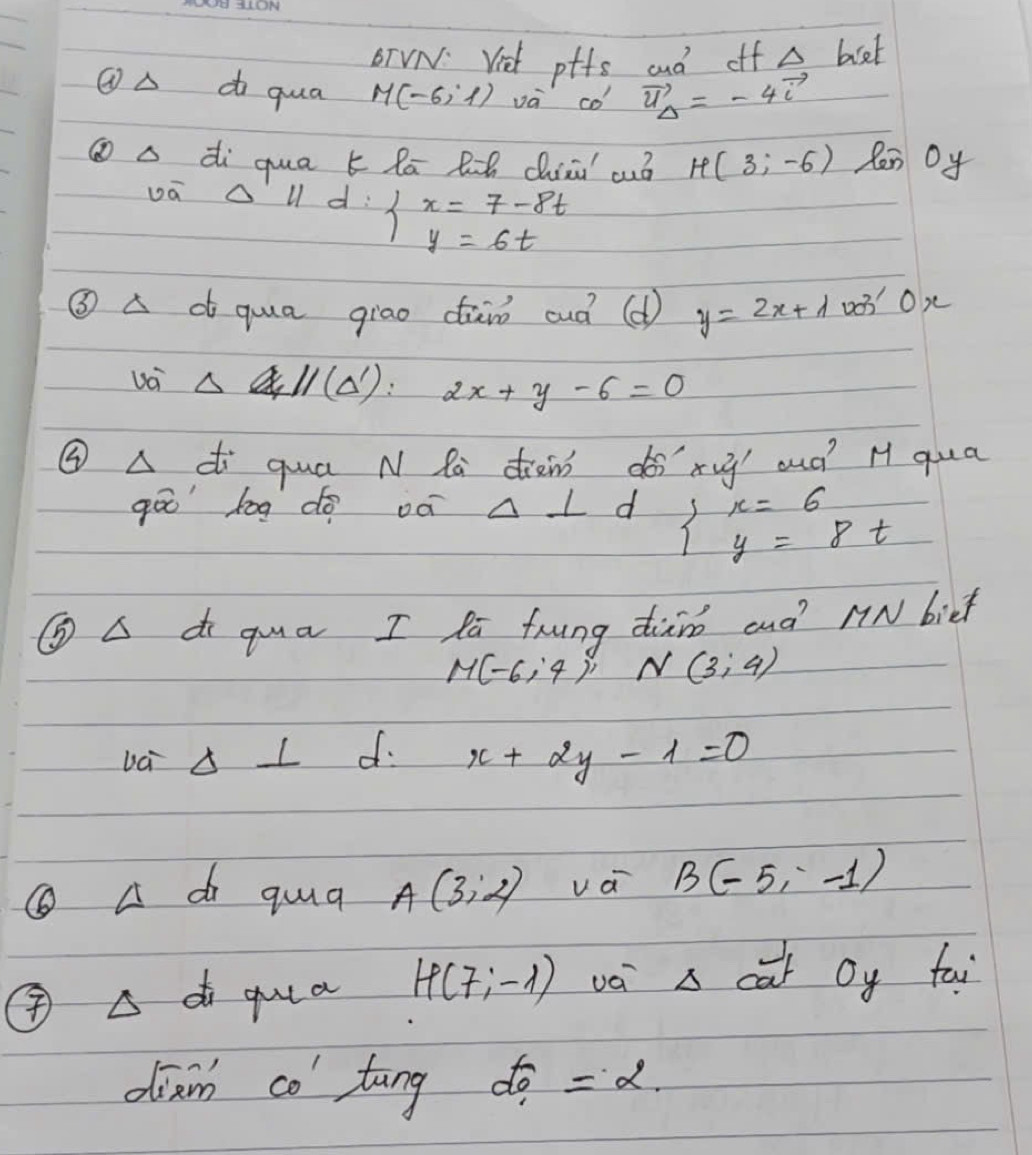 NOTE BOOK
BTVN: Viết ptts của đt Δ biết
① Δ đi qua M(-6;1) và có u⃗_Δ = -4i⃗
② Δ đi qua K là hình chiếu của H(3;-6) lên Oy
và Δ // d: { x = 7-8t
y = 6t
③ Δ đi qua giao điểm của (d) y = 2x+1 với Ox
và Δ // (Δ'): 2x + y - 6 = 0
④ Δ đi qua N là điểm đối xứng của M qua
gốc toạ độ và Δ ⊥ d { x = 6
y = 8t
⑤ Δ đi qua I là trung điểm của MN biết
M(-6;4); N(3;4)
và Δ ⊥ d: x + 2y - 1 = 0
⑥ Δ đi qua A(3;2) và B(-5;-1)
⑦ Δ đi qua H(7;-1) và Δ cắt Oy tại
điểm có tung độ = 2.